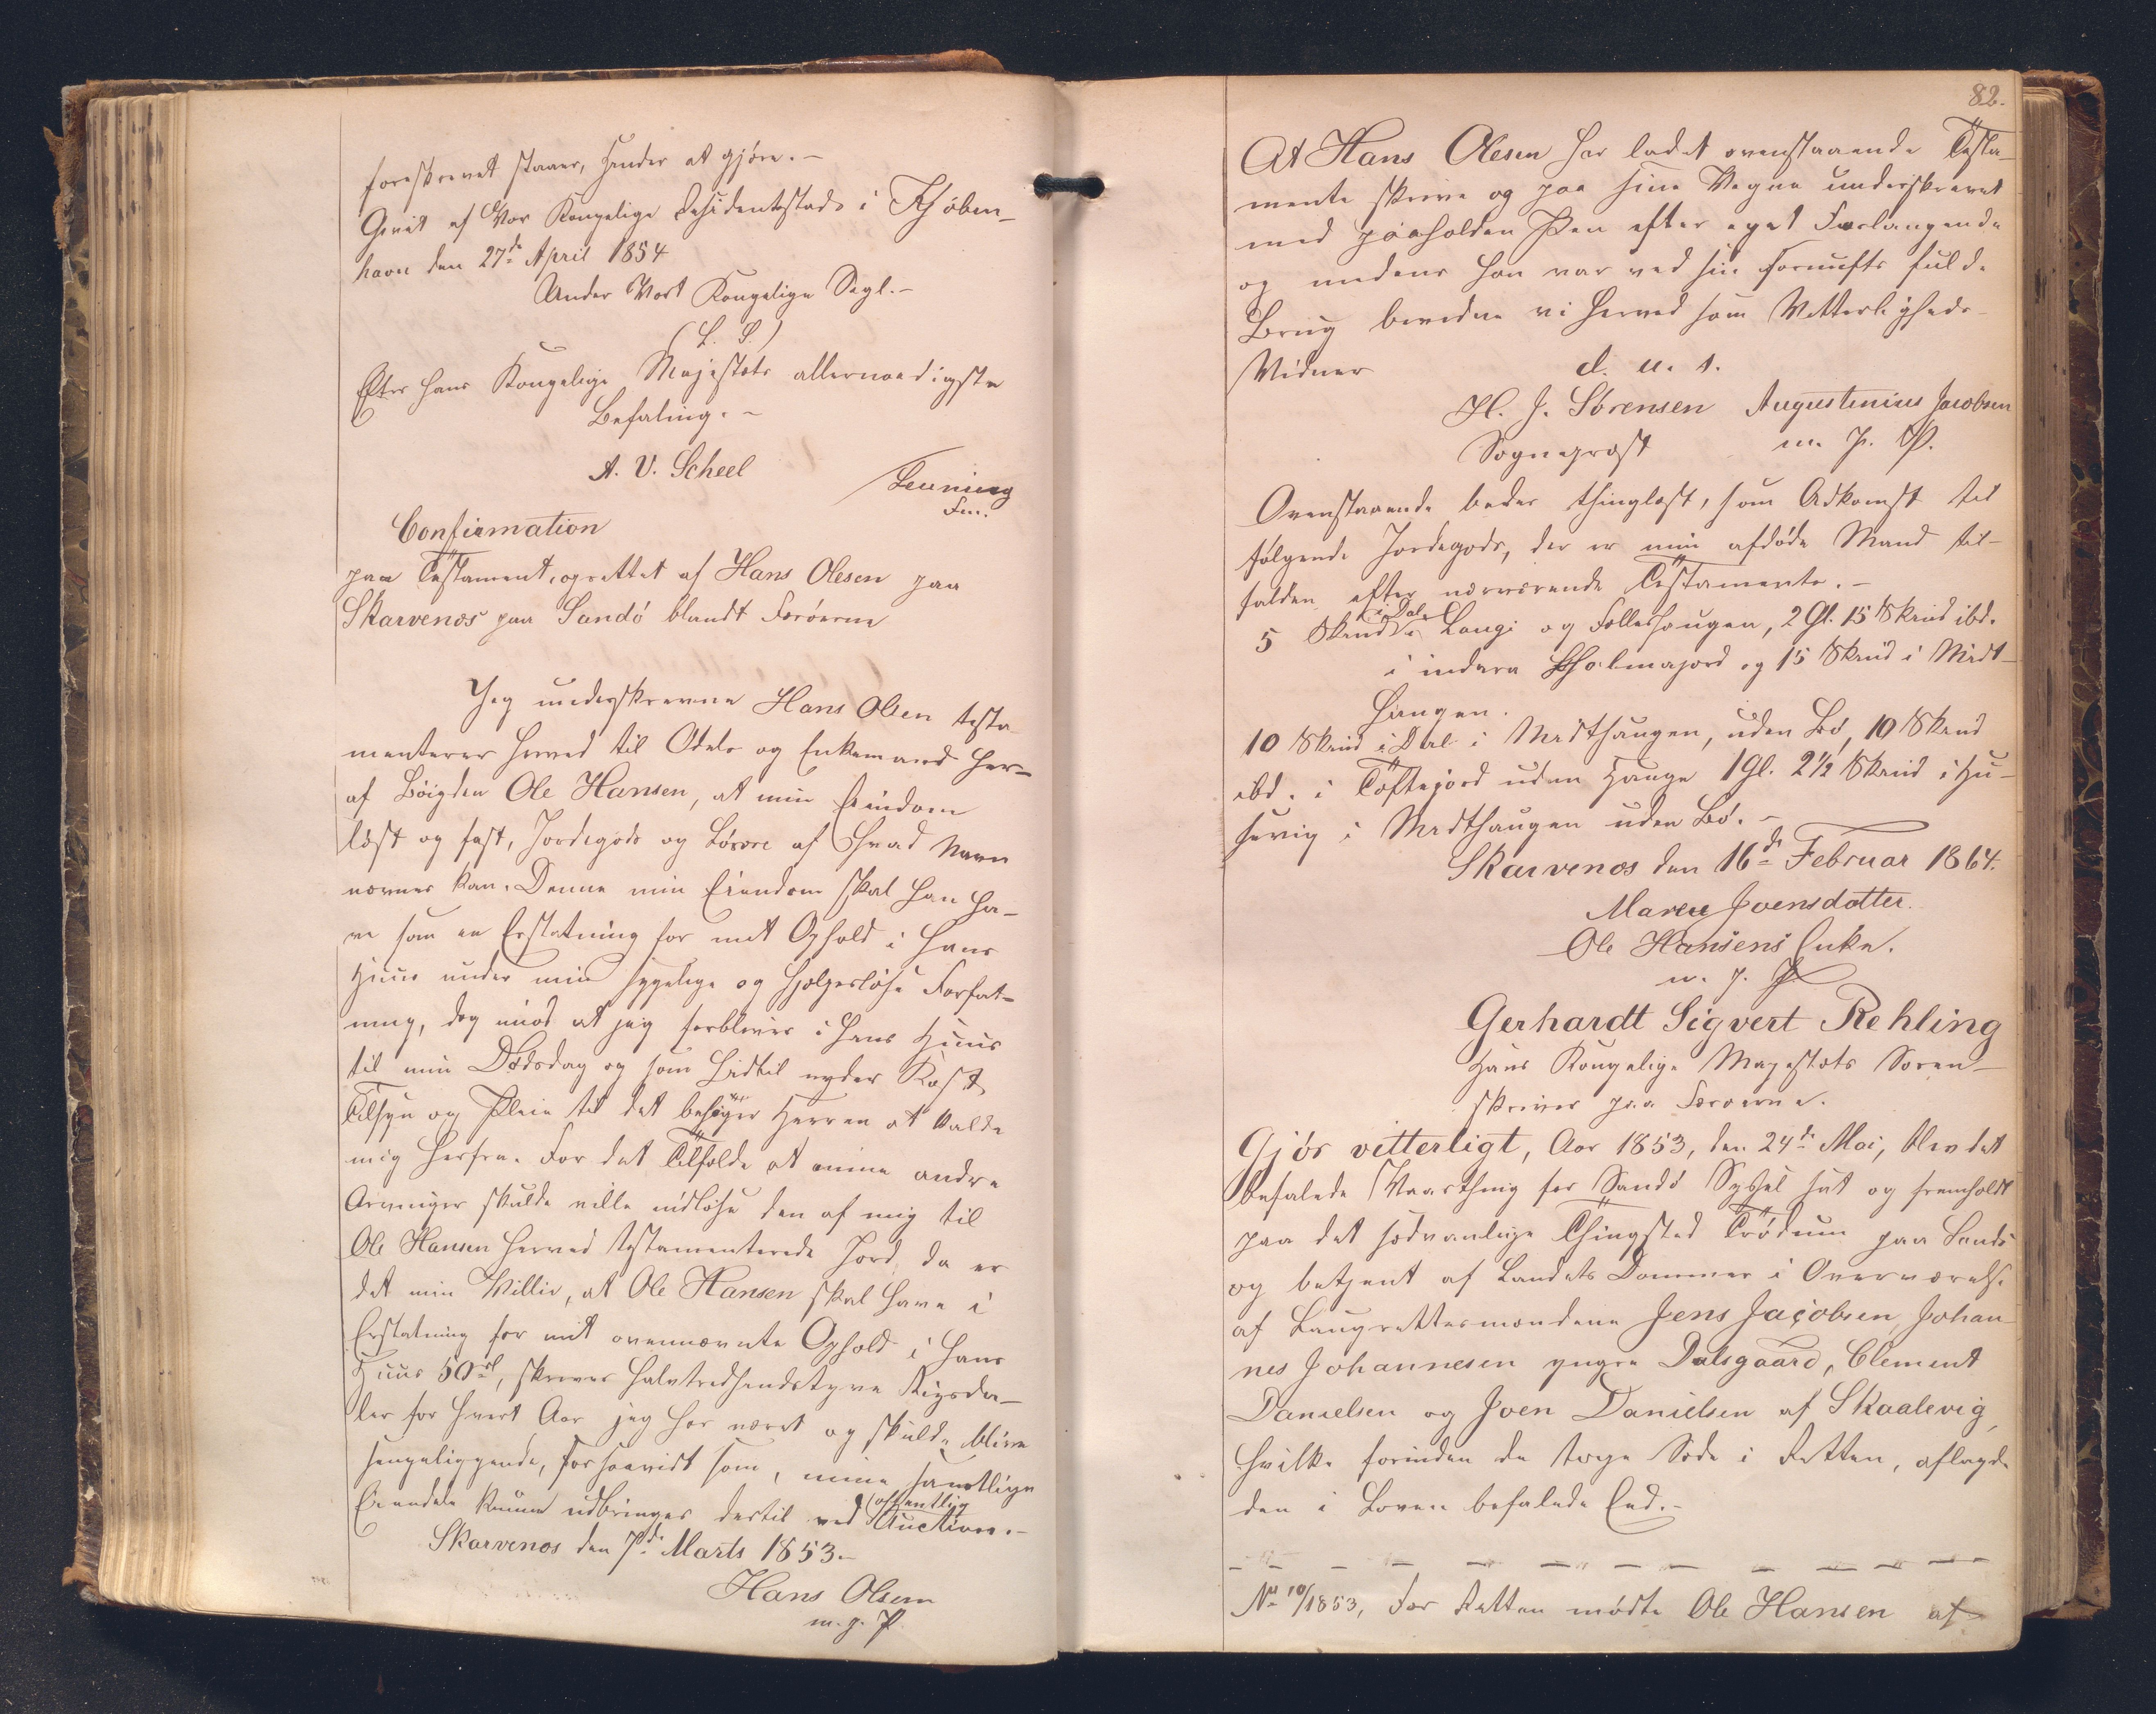 foreskrevet staaer, Hinder at gjøre.-
Givet af Vor Kongelige Residentsstad i Kjøben-
havn den 27de April 1854
Under Vort Kongelige Segl.-
(L. S.)
Efter Hans Kongelige Majestæts allernaadigste
Befaling.-
A. V. Scheel
Leuning
Fm.
Confirmation
paa Testament, oprettet af Hans Olesen paa
Skarvenæs paa Sandö blandt Færöerne
Jeg underskrevne Hans Olsen testa
menterer herved til Odels og Enkemand her-
af Böigden Ole Hansen, at min Eiendom
löst og fast, Jordegods og Lösöre af hvad Navn
nævnes kan. Denne min Eiendom skal han ha-
ve som en Erstatning for mit Ophold i hans
Huus under min sygelige og hjælpeslöse Forfat-
ning, dog imod at jeg forbliver i hans Huus
til min Dödsdag og som hidtil nyder Kost,
Tilsyn og Pleie til det behager Herren at kalde
mig herfra. For det Tilfælde at mine andre
Arvinger skulde ville indlöse den af mig til
Ole Hansen herved testamenterede Jord, da er
det min Villie, at Ole Hansen skal have i
Erstatning for mit ovennævnte Ophold i hans
Huus 50rd, skriver halvtredsindstyve Rigsda-
ler for hvert Aar jeg har været og skulde blive
sengeliggende, forsaavidt som, mine samtlige
Eiendele kunne udbringes dertil ved (offentlig
Auction.-
Skarvenæs den 7de Marts 1853.-
Hans Olsen
m. p. P.
82.
At Hans Olesen har ladet ovenstaaende Testa-
mente skrive og paa sine Vegne underskrevet
med paaholden Pen efter eget Forlangende
og medens han var ved sin Fornufts fulde
Brug bevidne vi herved som Vitterligheds-
Vidner
d. u. s.
H. J. Sörensen Augustinius Jacobsen
Sognepræst m. p. P.
Ovenstaaende bedes thinglæst, som Adkomst til
fölgende Jordegods, der er min afdöde Mand til-
falden efter nærværende Testamente.-
5 Skind i Dal i Langi ogÆlleshaugen, 2 Gl. 15 Skind ibd.
i indera Holmajord og 15 Skind i Midt-
haugen.
10 Skind i Dal i Midthaugen, uden Bö, 10 Skind
ibd. i Töftejord uden Hauge 1 Gl. 2 1/2 Skind i Hu-
sevig i Midthaugen uden Bö.-
Skarvenæs den 16de Februar 1864.
Maren Joensdatter.
Ole Hansens Enke.
m. p. P.
Gerhardt Sigvert Rehling
Hans Kongelige Majestæts Soren-
skriver paa Færöerne.
Gjör vitterligt, Aar 1853, den 24de Mai, blev det
befalede Vaarthing for Sandö Syssel sat og fremholdt
paa det sædvanlige Thingsted Trödum paa Sandö
og betjent af Landets Dommer i Overværelse
af Laugrettesmændene Jens Jacobsen, Johan
nes Johannesen yngre Dalsgaard, Clement
Danielsen og Joen Danielsen af Skaalevig,
hvilke forinden de toge Sæde i Retten, aflagde
den i Loven befalede Eed.-
No 10/1853, For Retten mödte Ole Hansen af